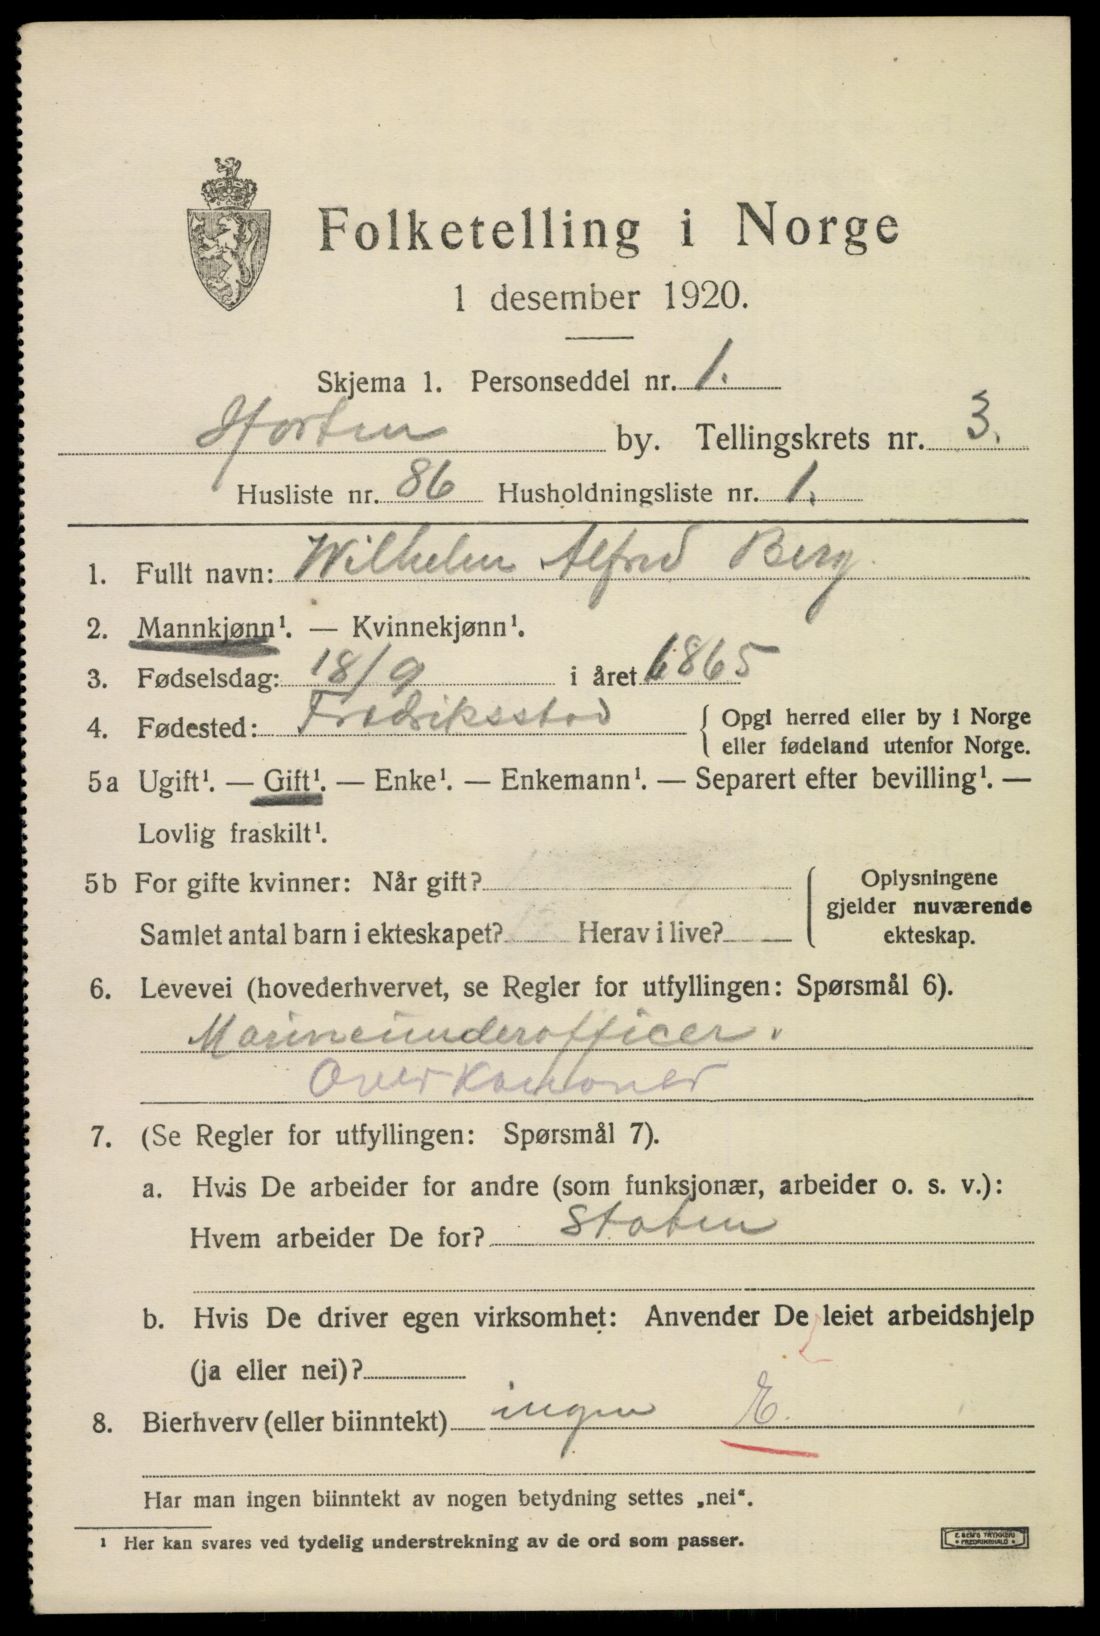 Folketelling i Norge
1 desember 1920.
Skjema 1. Personseddel nr. 1.
Horten by. Tellingskrets nr. 3.
Husliste nr. 86 Husholdningsliste nr. 1.
1. Fullt navn: Wilhelm Alfred Berg.
2. Mannkjønn¹. — Kvinnekjønn¹.
3. Fødselsdag: 18/9 i året 1865
4. Fødested: Fredriksstad { Opgi herred eller by i Norge
eller fødeland utenfor Norge.
5a Ugift¹. — Gift¹. — Enke¹. — Enkemann¹. — Separert efter bevilling¹. —
Lovlig fraskilt¹.
5b For gifte kvinner: Når gift?
Samlet antal barn i ekteskapet? Herav i live?
Oplysningene
gjelder nuværende
ekteskap.
6. Levevei (hovederhvervet, se Regler for utfyllingen: Spørsmål 6).
Marineunderofficer.
Overkanoner
7. (Se Regler for utfyllingen: Spørsmål 7).
a. Hvis De arbeider for andre (som funksjonær, arbeider o. s. v.):
Hvem arbeider De for? Staten
b. Hvis De driver egen virksomhet: Anvender De leiet arbeidshjelp
(ja eller nei)?
8. Bierhverv (eller biinntekt) ingen E.
Har man ingen biinntekt av nogen betydning settes „nei“.
¹ Her kan svares ved tydelig understrekning av de ord som passer.
E. SEM'S TRYKKERI
FREDRIKSHALD